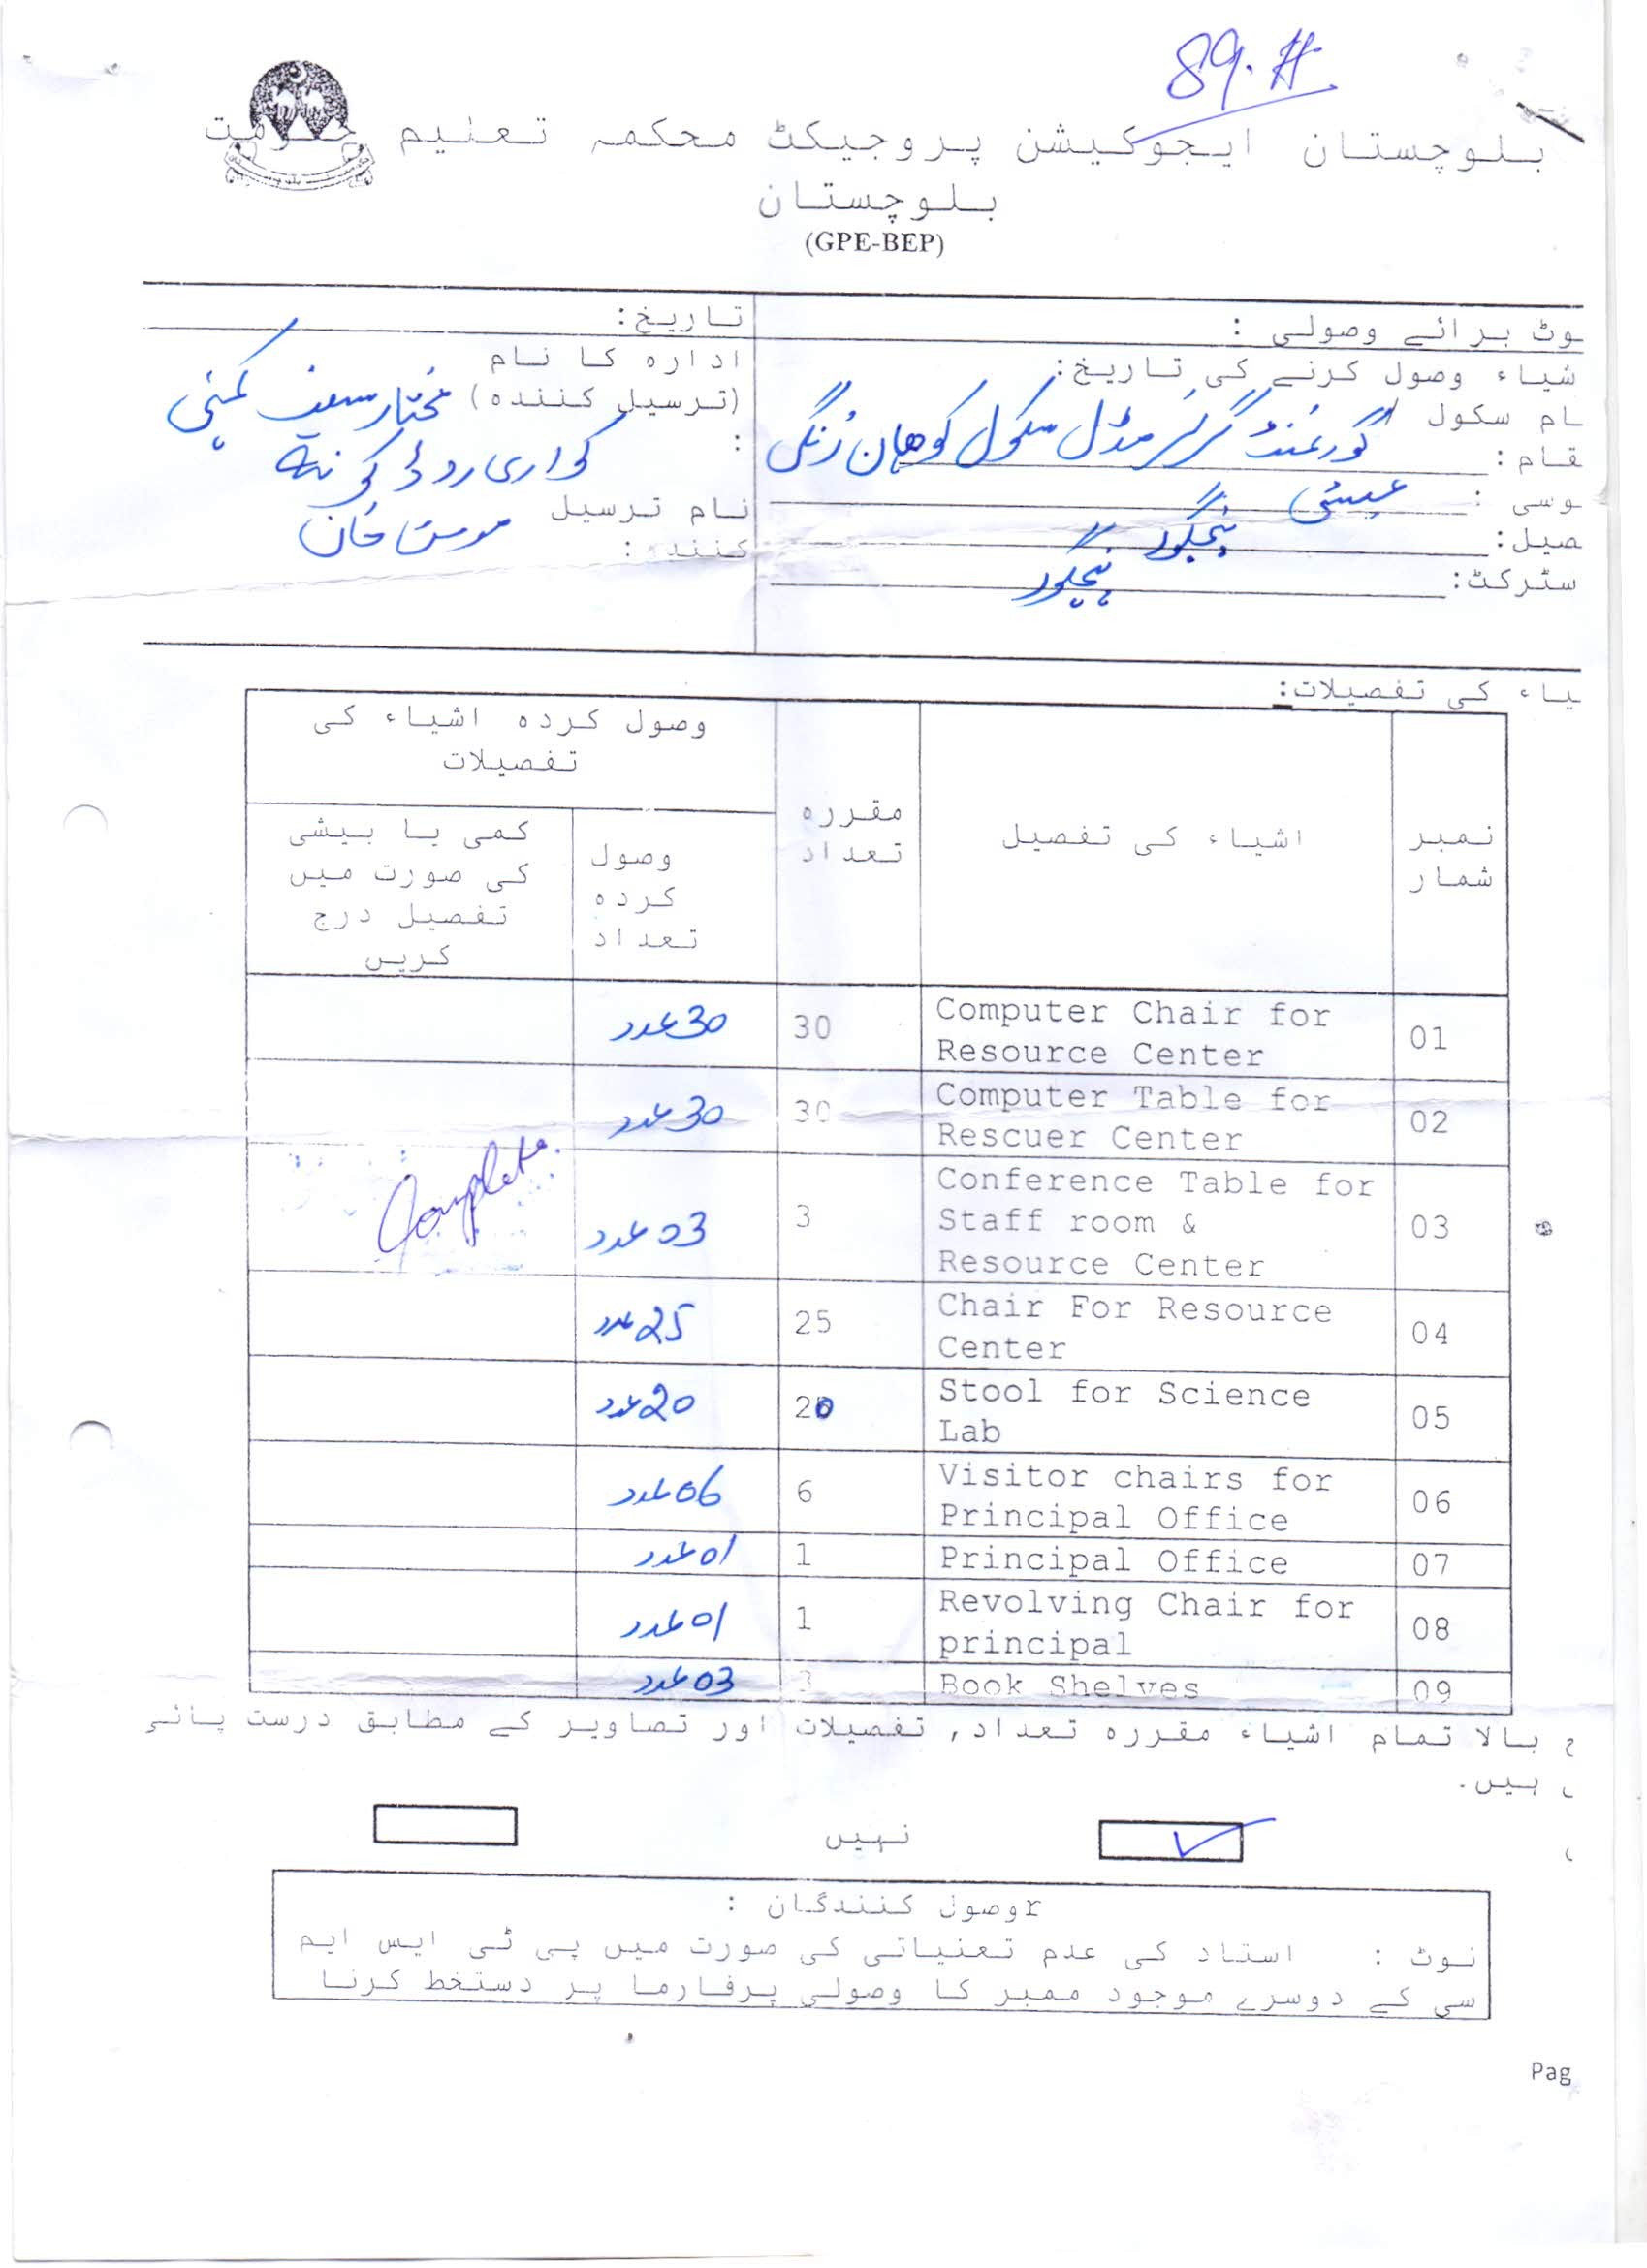 89.#
بلوچستان ایجوکیشن پروجیکٹ محکمہ تعلیم حکومت
بلوچستان
(GPE-BEP)
وٹ برائے وصولی :
تاریخ:
شیاء وصول کرنے کی تاریخ:
ام سکول گورنمنٹ گرلز مڈل سکول کوھان زنگی
قام :
وسی : عیسئی
صیل: پنجگور
سٹرکٹ: پنجگور
ادارہ کا نام
(ترسیل کنندہ) مختار سیف کمپنی
: کواری روڈ کوئٹہ
نام ترسیل خان
کنندہ:
یاء کی تفصیلات:
نمبر شمار
اشیاء کی تفصیل
مقررہ تعداد
وصول کردہ اشیاء کی تفصیلات
وصول کردہ تعداد
کمی یا بیشی کی صورت میں تفصیل درج کریں
01 Computer Chair for Resource Center 30 30 عدد
02 Computer Table for Rescuer Center 30 30 عدد
03 Conference Table for Staff room & Resource Center 3 03 عدد Complete.
04 Chair For Resource Center 25 25 عدد
05 Stool for Science Lab 20 20 عدد
06 Visitor chairs for Principal Office 6 06 عدد
07 Principal Office 1 01 عدد
08 Revolving Chair for principal 1 01 عدد
09 Book Shelves 3 03 عدد
ج بالا تمام اشیاء مقررہ تعداد, تفصیلات اور تصاویر کے مطابق درست پائی
ں ہیں۔
ں ✓ نہیں
rوصول کنندگان :
نوٹ : استاد کی عدم تعنیاتی کی صورت میں پی ٹی ایس ایم
سی کے دوسرے موجود ممبر کا وصولی پرفارما پر دستخط کرنا
Pag